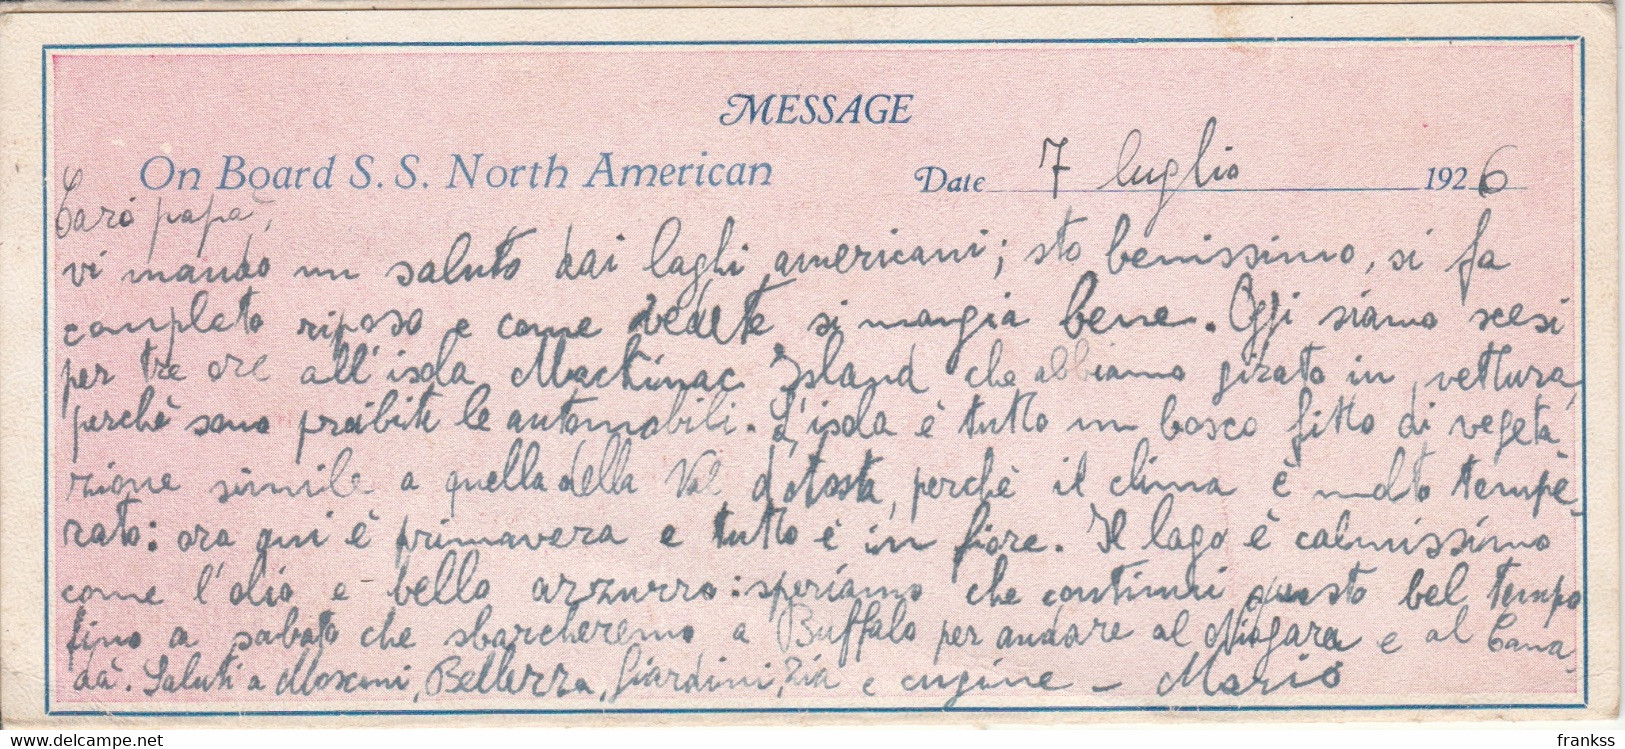 MESSAGE
On Board S. S. North American Date 7 luglio 1926
Caro papà,
vi mando un saluto dai laghi americani; sto benissimo, si fa
completo riposo e come vedete si mangia bene. Oggi siamo scesi
per tre ore all'isola Mackinac Island che abbiamo girato in vettura,
perchè sono proibite le automobili. L'isola è tutto un bosco fitto di vegeta
zione simile a quella della Val d'Aosta, perchè il clima è molto tempe-
rato: ora qui è primavera e tutto è in fiore. Il lago è calmissimo
come l'olio e bello azzurro: speriamo che continui questo bel tempo
fino a sabato che sbarcheremo a Buffalo per andare al Niagara e al Cana-
dà. Saluti a Mosconi, Bellezza, Giardini, zia e cugine - Mario
frankss